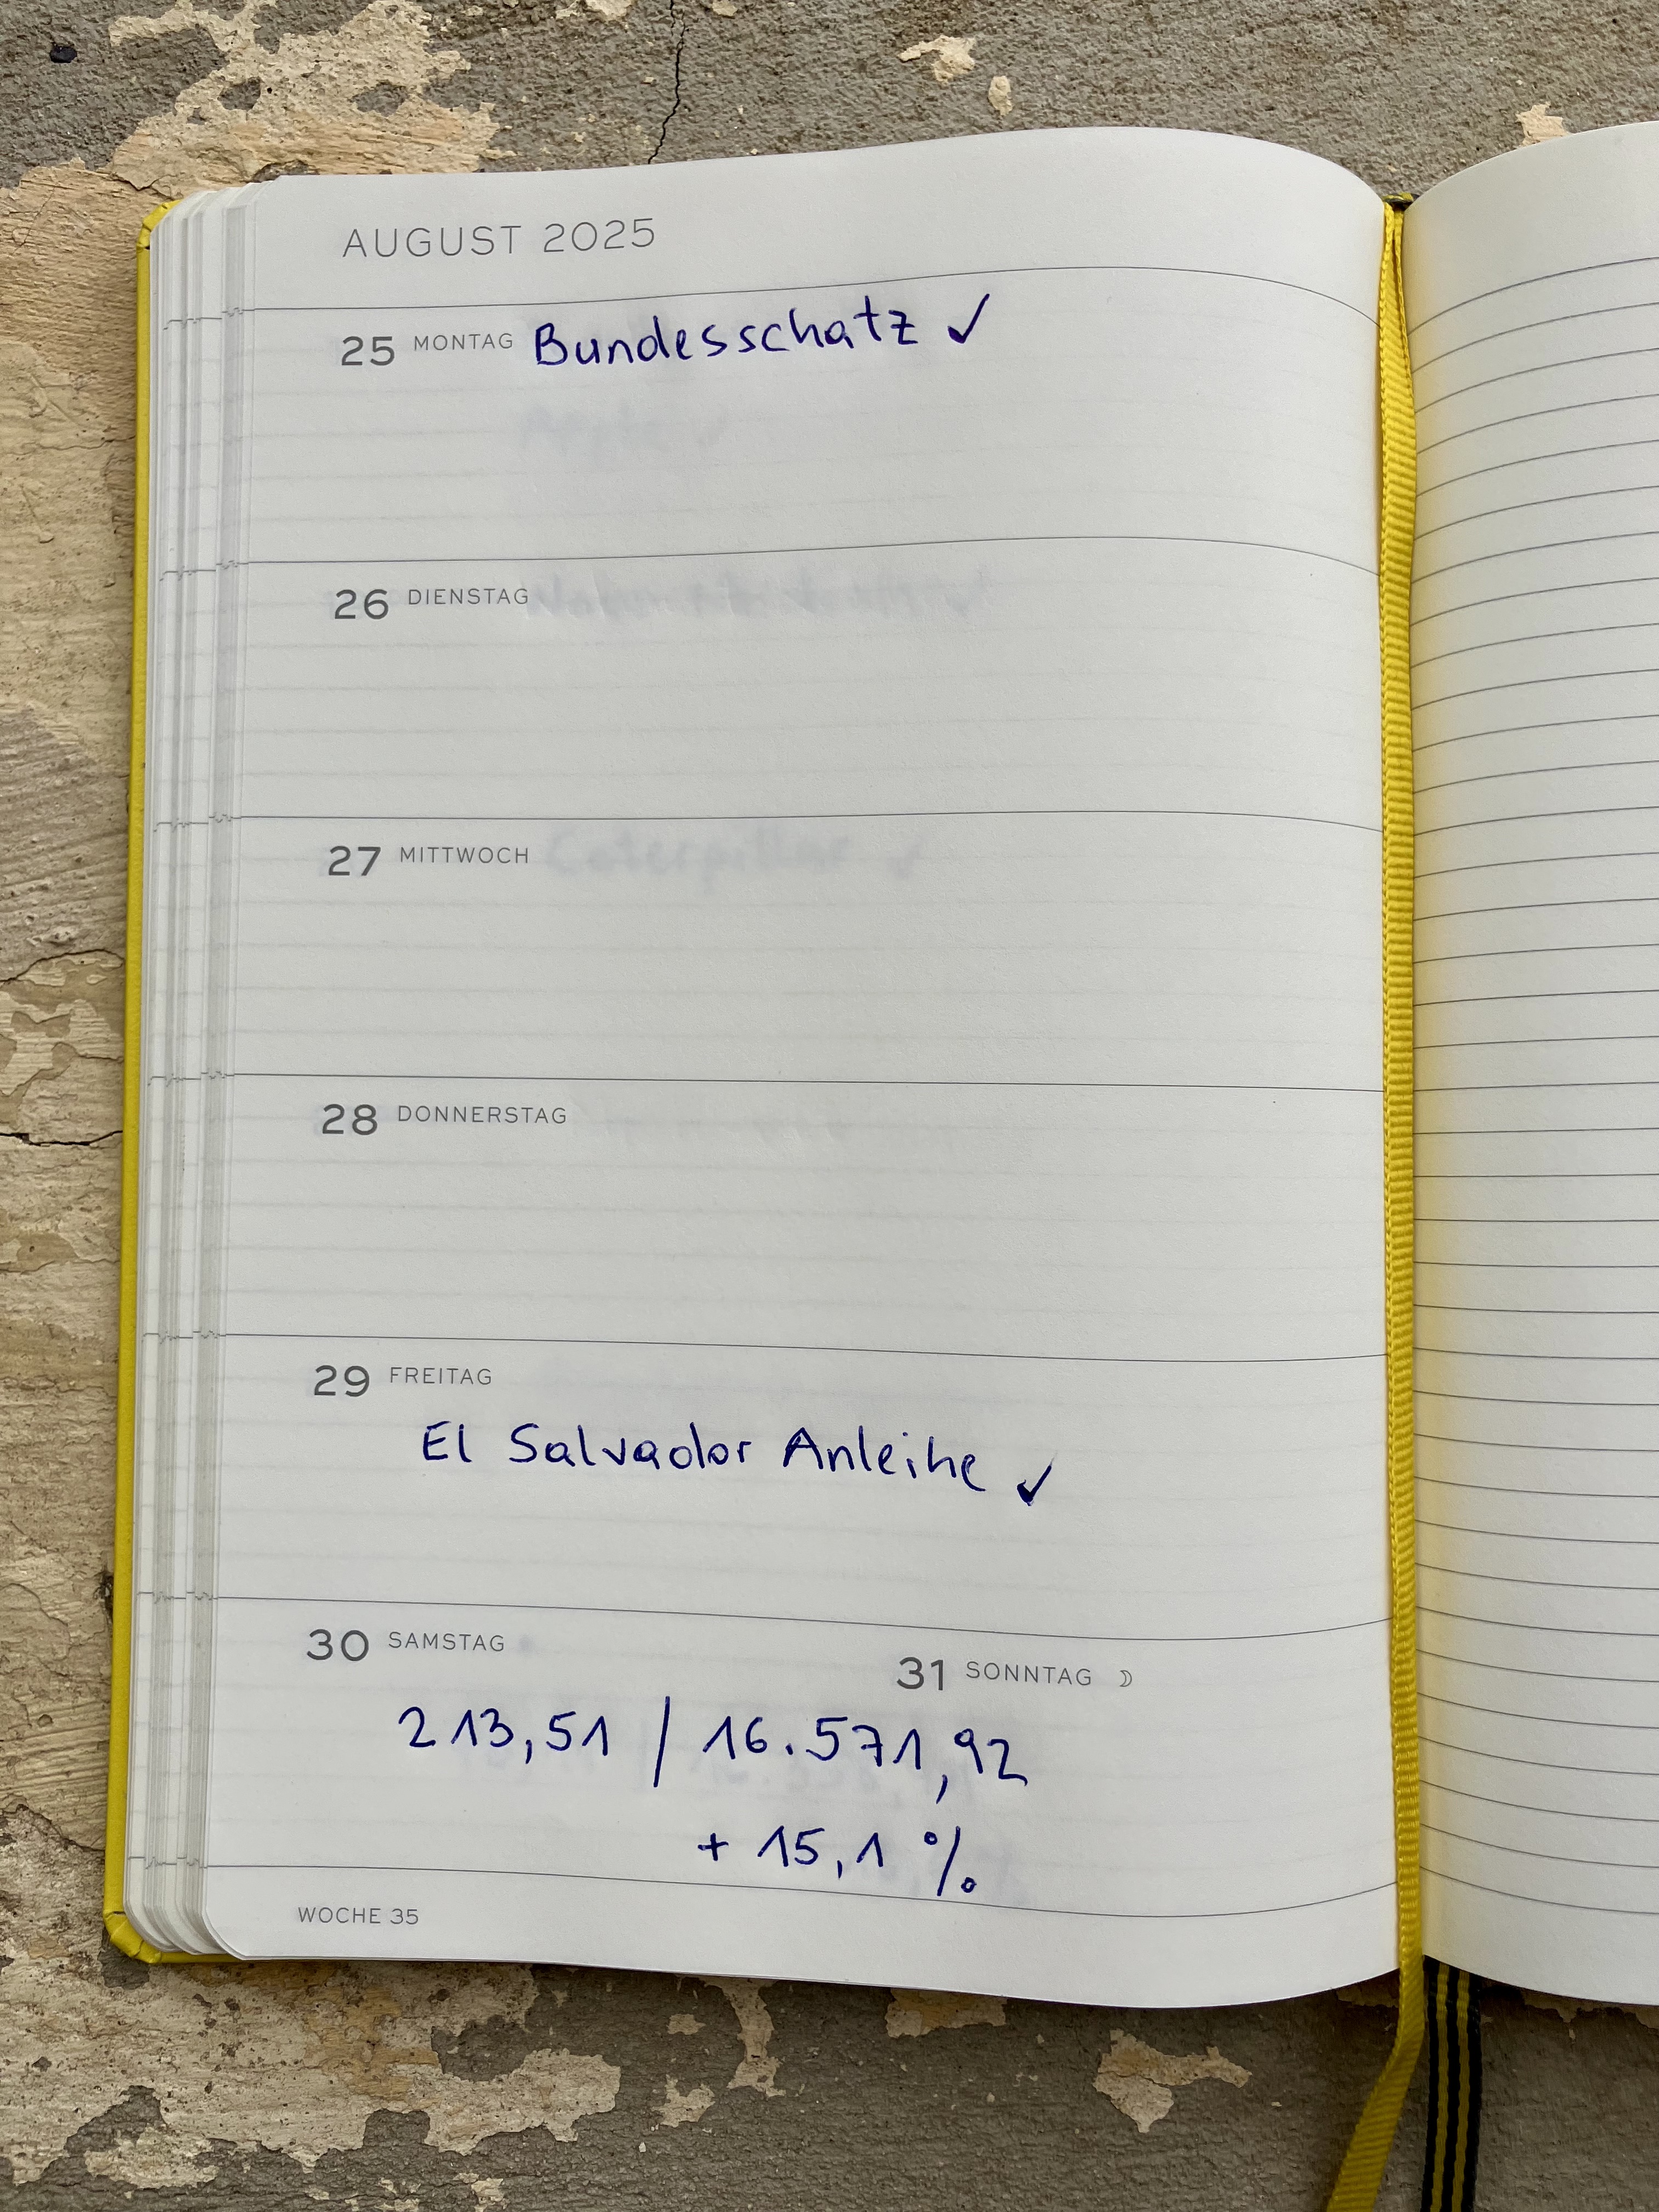 AUGUST 2025
25 MONTAG Bundesschatz ✓
26 DIENSTAG
27 MITTWOCH
28 DONNERSTAG
29 FREITAG
El Salvador Anleihe ✓
30 SAMSTAG
31 SONNTAG ☽
213,51 / 16.571,92
+ 15,1 %
WOCHE 35